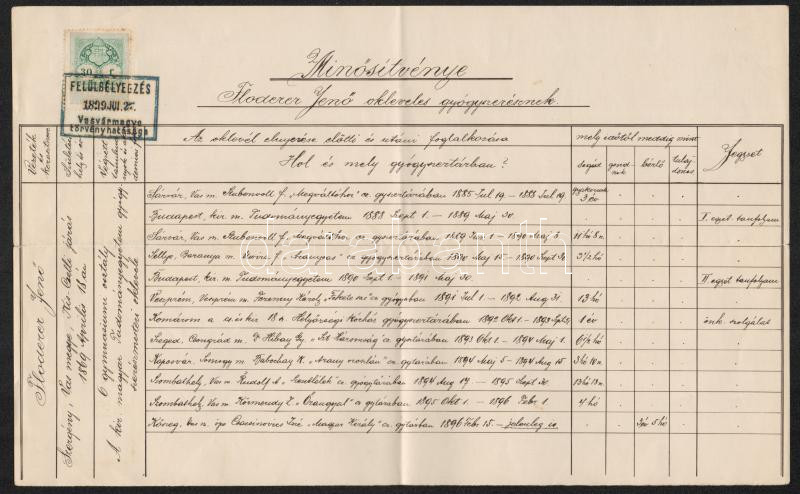 30
FELÜLBÉLYEGZÉS
1899
Vasvármegye
törvényhatósága
Minősítvénye
Floderer Jenő okleveles gyógyszerésznek.
Vezeték és keresztneve
Születési hely és év
Végzett
Az oklevél elnyerése előtti és utáni foglalkozása
Hol és mely gyógyszertárban?
mely időtől meddig mint
segéd
gond nok
bérlő
tulaj donos
Jegyzet
Floderer Jenő
Szergény, Vas megye, Kis-Czelli járás
1869 Április 18-án
6 gymnasiumi osztály
A kir. magyar Tudományegyetem gyógy
szerészmesteri oklevele
Sárvár, Vas m. "Megváltóhoz" cz. gyszertárában 1885 Jul 19. – 1888 Jul 19. gyakornok 3 év
Budapest, kir. m. Tudományegyetem 1888 Szept 1. – 1889 Maj 30. I. egyet. tanfolyam
Sárvár, Vas m. "Megváltóhoz" cz. gyszertárában 1889 Jun 1. – 1890 Maj 3. 11 hó 8 n.
Sellye, Baranya m. "Aranyas" cz. gyógyszertárában 1890 Maj – 1890 Szept 3½ hó
Budapest kir. m. Tudományegyetem 1890 Szept 1. – 1891 Maj 30. II. egyet. tanfolyam
Veszprém, Veszprém m. Ferenczy Károly, Fekete cz. gyógytban 1891 Jul 1. – 1892 Aug 31. 13 hó
Komárom Helyőrségi Kórház gyógyszertárában 1892 Okt 1. – 1893 1 év önk. szolgálat
Szeged, Csongrád m. "Szt Háromság" cz. gytárában 1893 Okt 1. – 1894 Maj 1. 6½ hó
Kaposvár, Somogy m. Babochay K. "Arany oroszlán" cz. gytárában 1894 Maj 5. – 1894 Aug 15. 3 hó 10 n.
Szombathely, Vas m. Rudolf A. cz. gyógytárában 1894 Aug 17. – 1895 Szept 30. 13 hó 13 n.
Szombathely, Vas m. Körmendy "Őrangyal" cz. gytárában 1895 Okt 1. – 1896 Febr 1. 4 hó
Kőszeg, Vas m. Csacsinovics "Magyar Király" cz. gytárban 1896 Febr 15. – jelenleg is. 3 év 5 hó